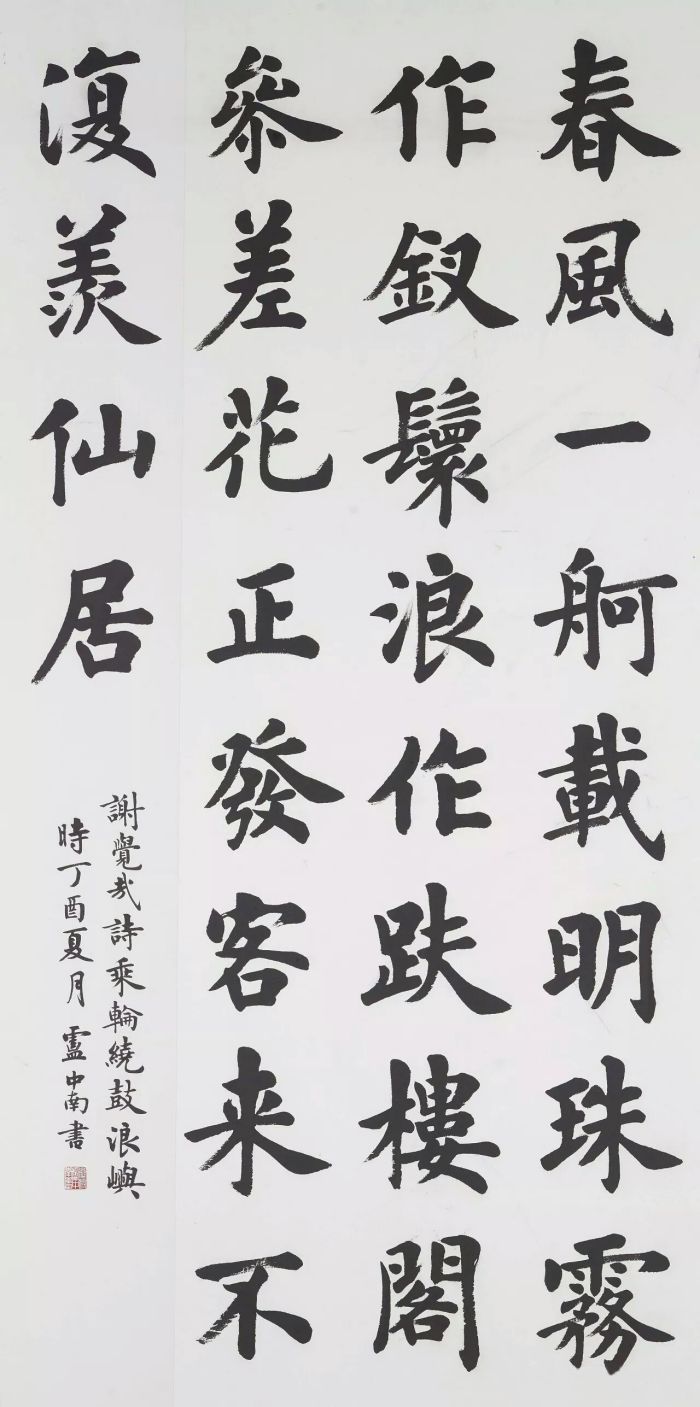 春風一舸載明珠霧
作釵鬟浪作趺樓閣
參差花正發客来不
復羨仙居
謝覺哉詩乘輪繞鼓浪嶼
時丁酉夏月盧中南書